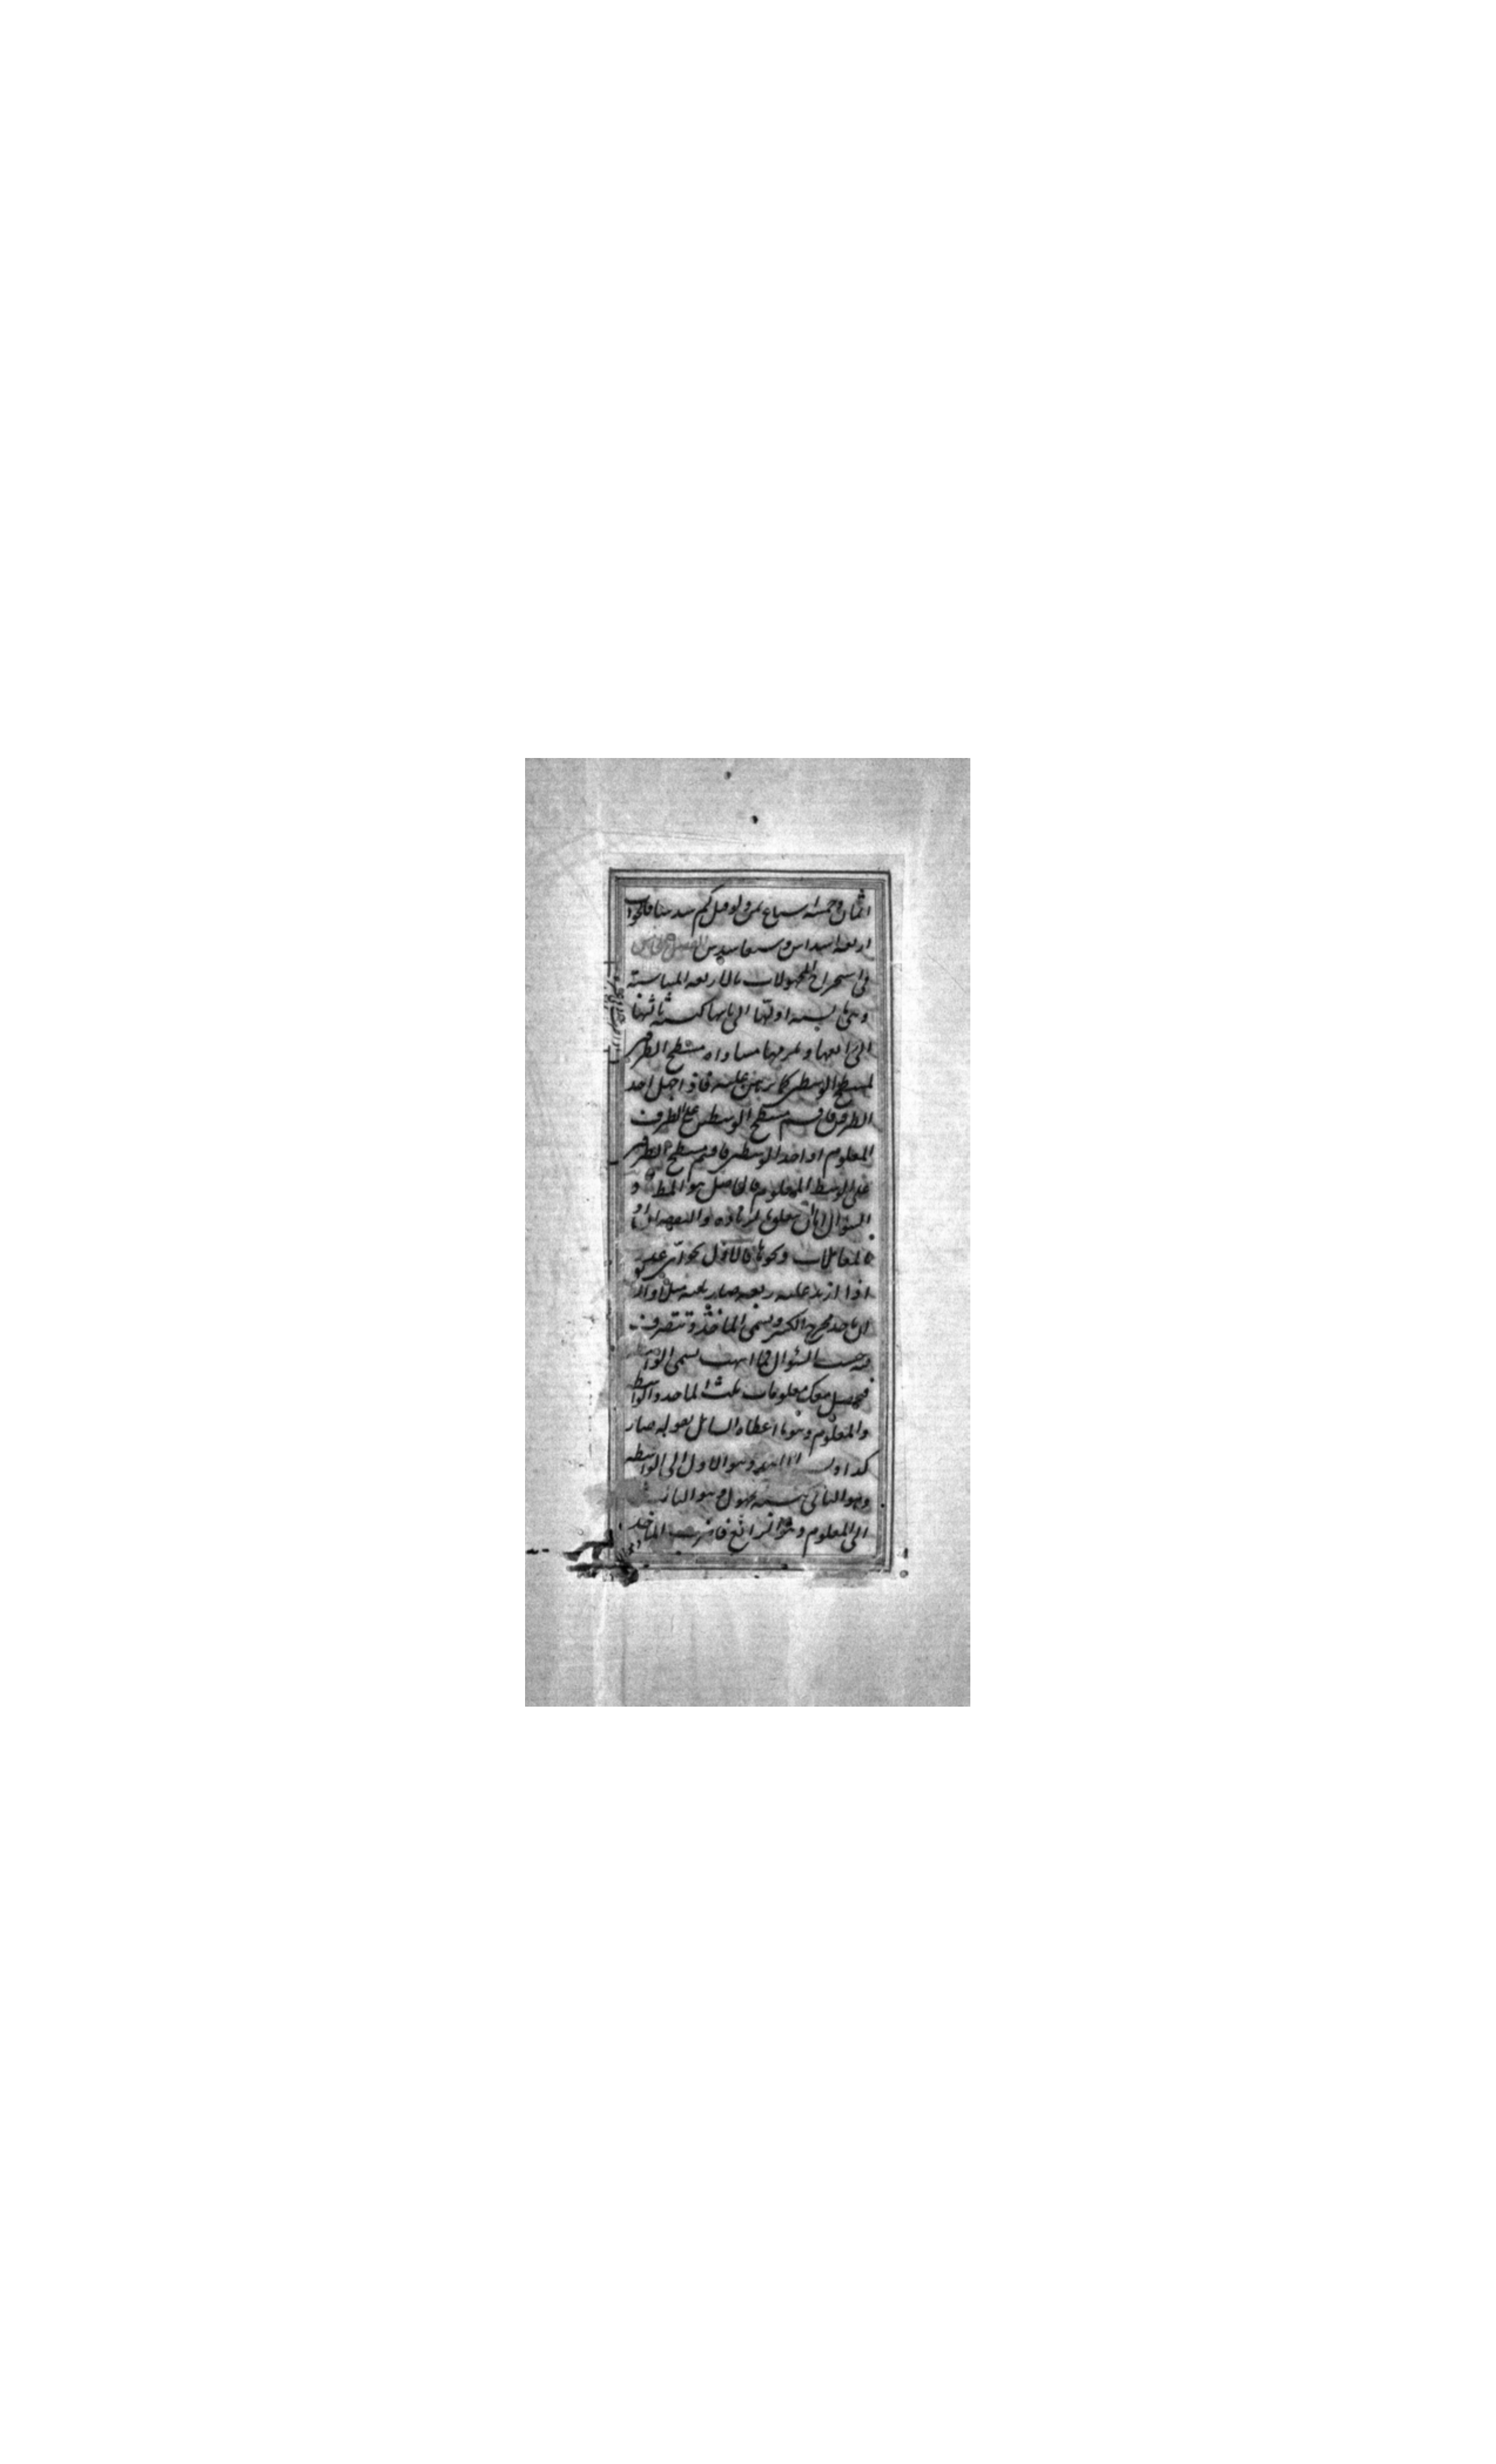 اثمان وخمسه اسباع ثمن ولو قيل كم سدسا فالجواب
اربعه اسداس وسبعا سدس الفصل
فى استخراج المجهولات بالاربعه المتناسبه
وهى ما نسبه اولها الى ثانيها كنسبه ثالثها
الى رابعها و مساواه مسطح الطرفين
لمسطح الوسطين كما برهن عليه فاذا جهل احد
الطرفين فاقسم مسطح الوسطين على الطرف
المعلوم او احد الوسطين فاقسم مسطح الطرفين
على الوسط المعلوم فالخارج هو المط و
السؤال اما ان يتعلق بالزياده والنقصان او
بالمعاملات ونحوها فالاول نحو اى عدد
اذا زيد عليه ربعه صار ثلثه مثلا و
ان تاخذ مخرج الكسر ويسمى الماخذ وتتصرف
فيه بحسب السؤال فما انتهيت يسمى الواسطه
فيحصل معك معلومات ثلث الماخذ والواسطه
والمعلوم وهو ما اعطاه السائل بقوله صار
كذا وهو الاول الى الواسطه
وهو الثانى كنسبه المجهول وهو الثالث
الى المعلوم وهو الرابع فاضرب الماخذ